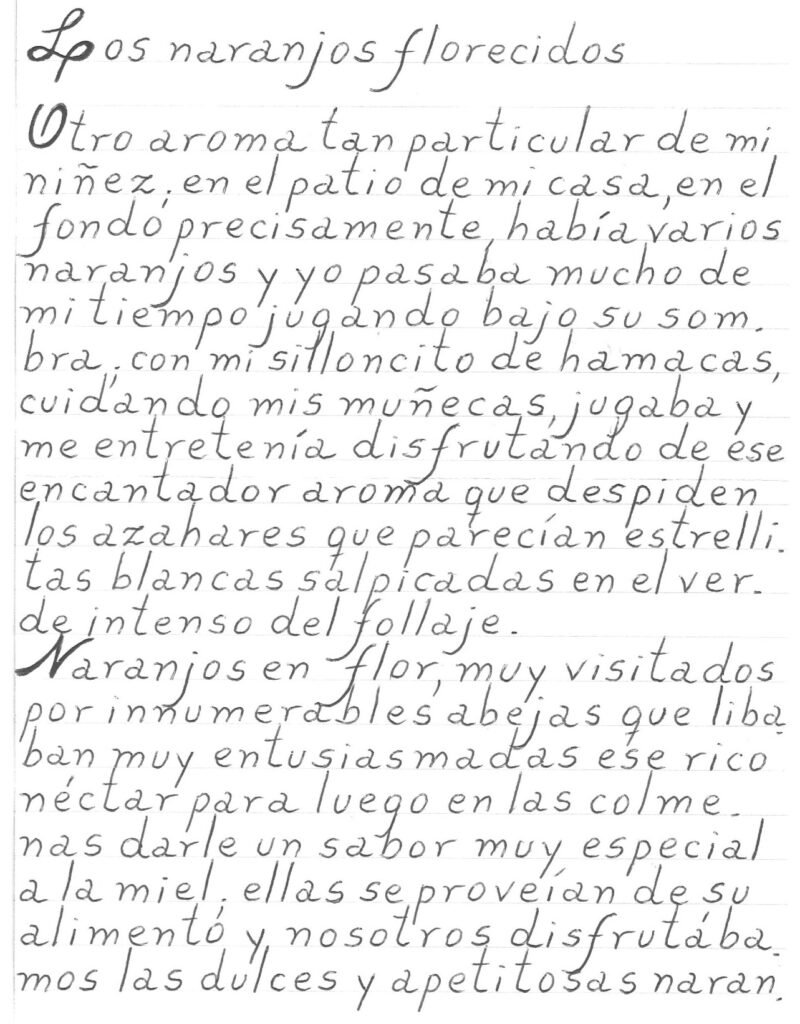 Los naranjos florecidos
Otro aroma tan particular de mi
niñez, en el patio de mi casa, en el
fondo precisamente, había varios
naranjos y yo pasaba mucho de
mi tiempo jugando bajo su som-
bra, con mi silloncito de hamacas,
cuidando mis muñecas, jugaba y
me entretenía disfrutando de ese
encantador aroma que despiden
los azahares que parecían estrelli-
tas blancas salpicadas en el ver-
de intenso del follaje.
Naranjos en flor, muy visitados
por innumerables abejas que liba-
ban muy entusiasmadas ese rico
néctar para luego en las colme-
nas darle un sabor muy especial
a la miel. ellas se proveían de su
alimento y nosotros disfrutába-
mos las dulces y apetitosas naran-